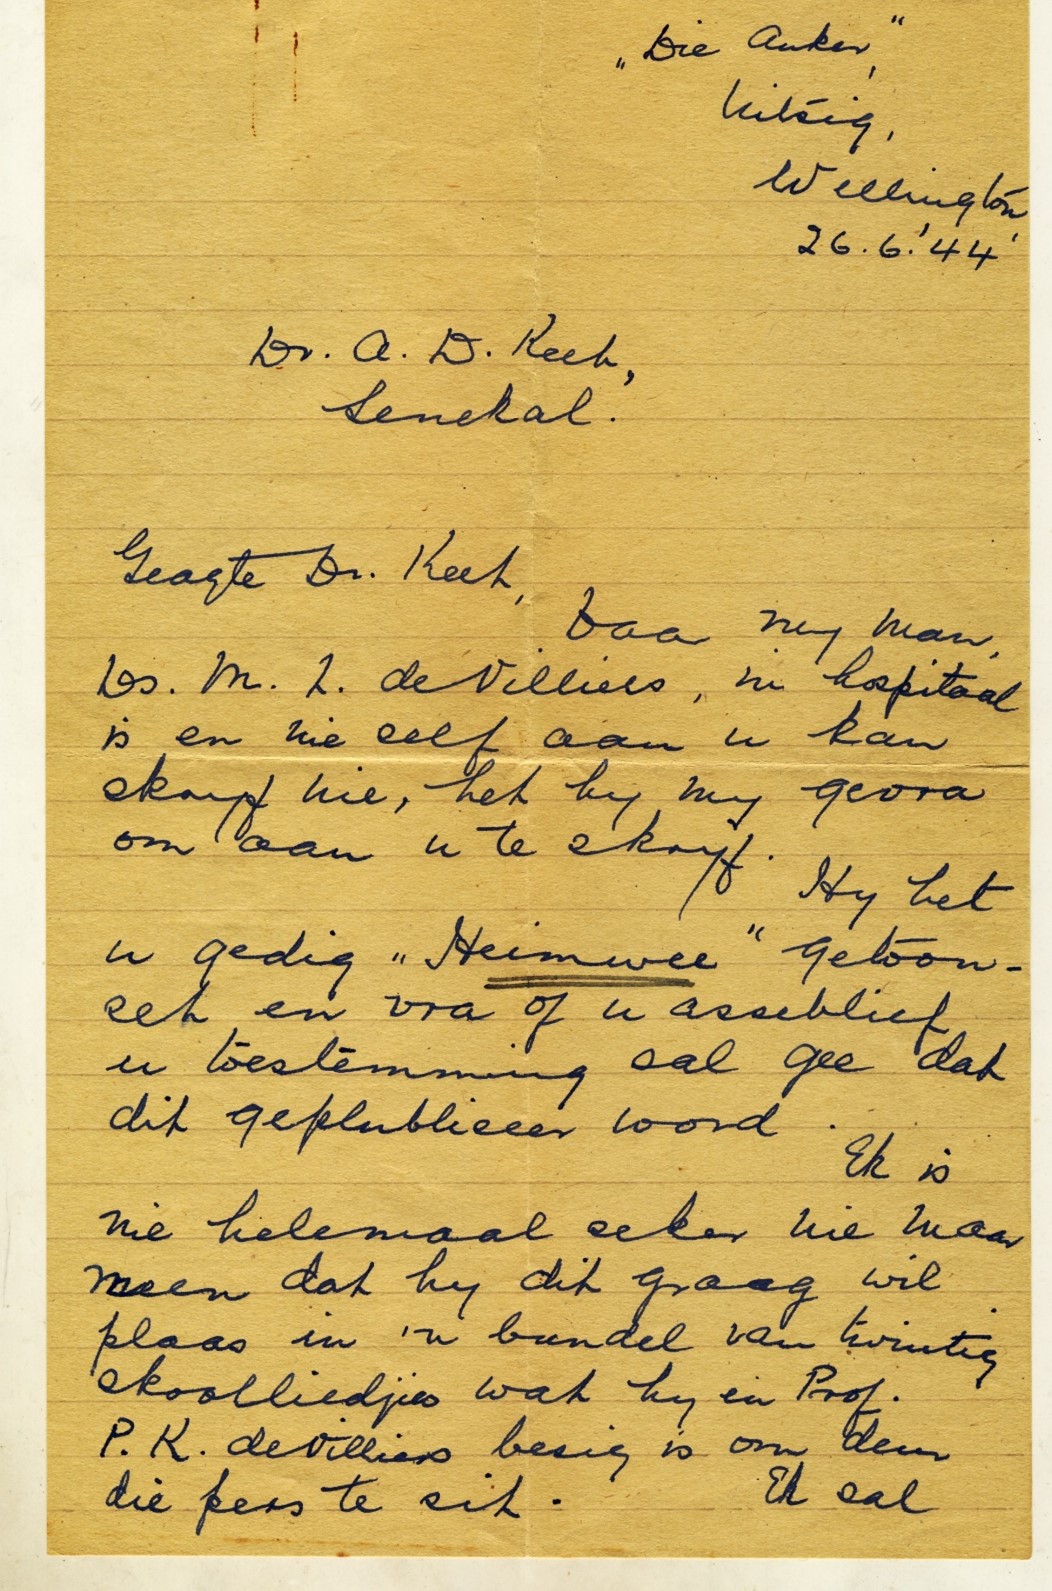 „Die Anker",
Uitsig,
Wellington,
26.6.'44'
Dr. A. D. Keet,
Senekal.
Geagte Dr. Keet,
Daar my man,
Ds. M. L. de Villiers, in hospitaal
is en nie self aan u kan
skryf nie, het hy my gevra
om aan u te skryf.
Hy het
u gedig „Heimwee" getoon-
set en vra of u asseblief
u toestemming sal gee dat
dit geplubliseer word.
Ek is
nie helemaal seker nie maar
meen dat hy dit graag wil
plaas in 'n bundel van twintig
skoolliedjies wat hy en Prof.
P. K. de Villiers besig is om deur
die pers te sit. Ek sal